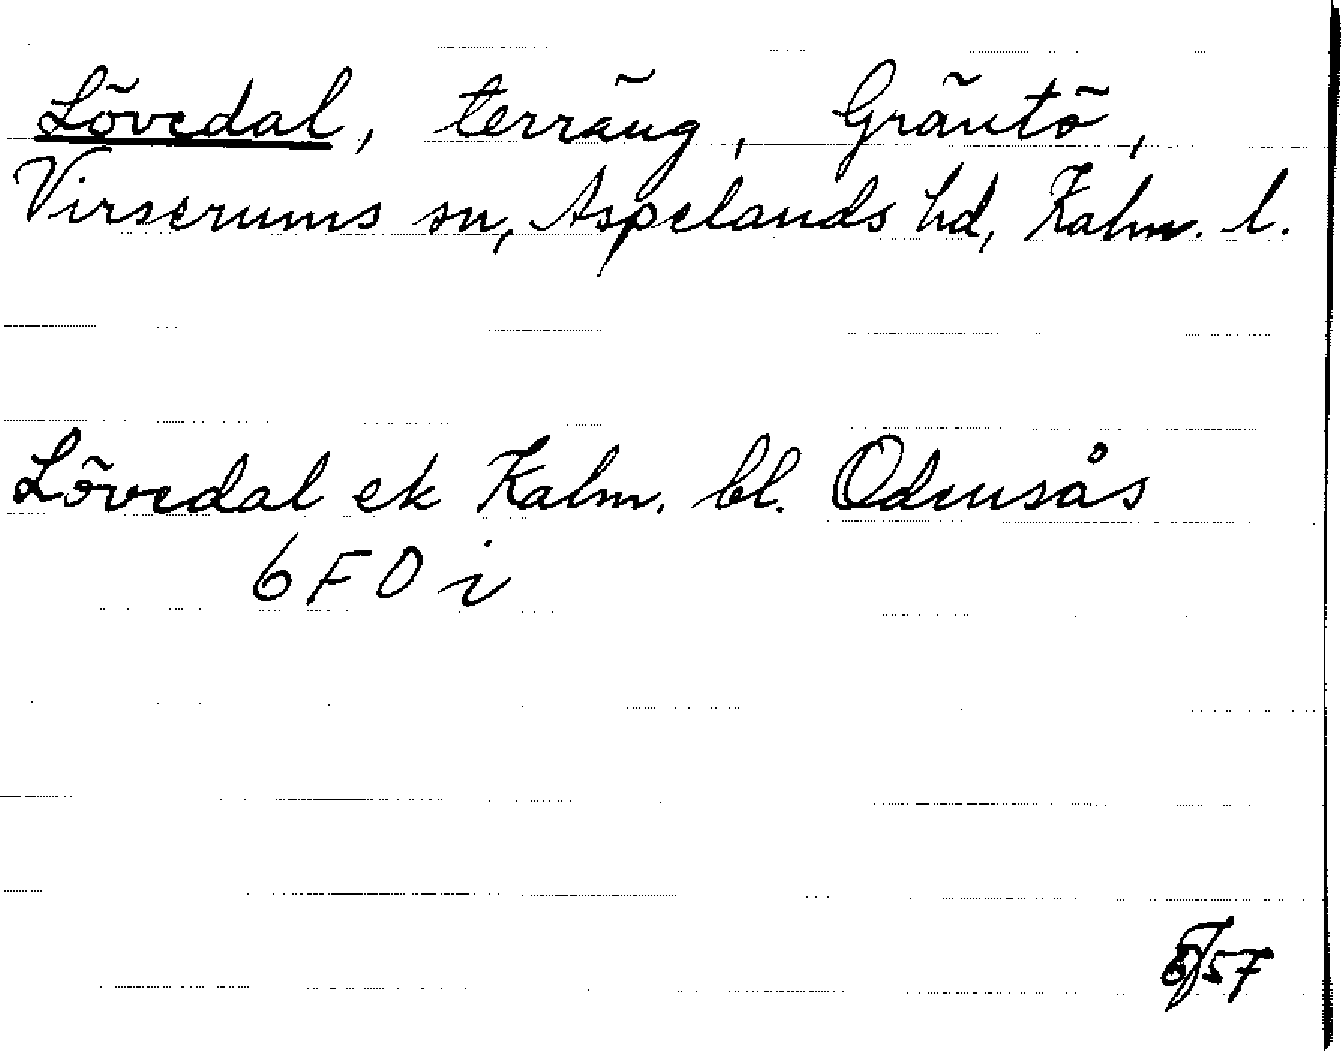 Lövedal, terräng, Gräntö,
Virserums sn, Aspelands hd, Kalm. l.
Lövedal ek Kalm. bl. Odensås
6 F 0 i